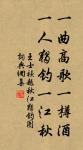 一曲高歌一樽酒
一人獨釣一江秋
王士禛題秋江獨釣圖
詞典網集